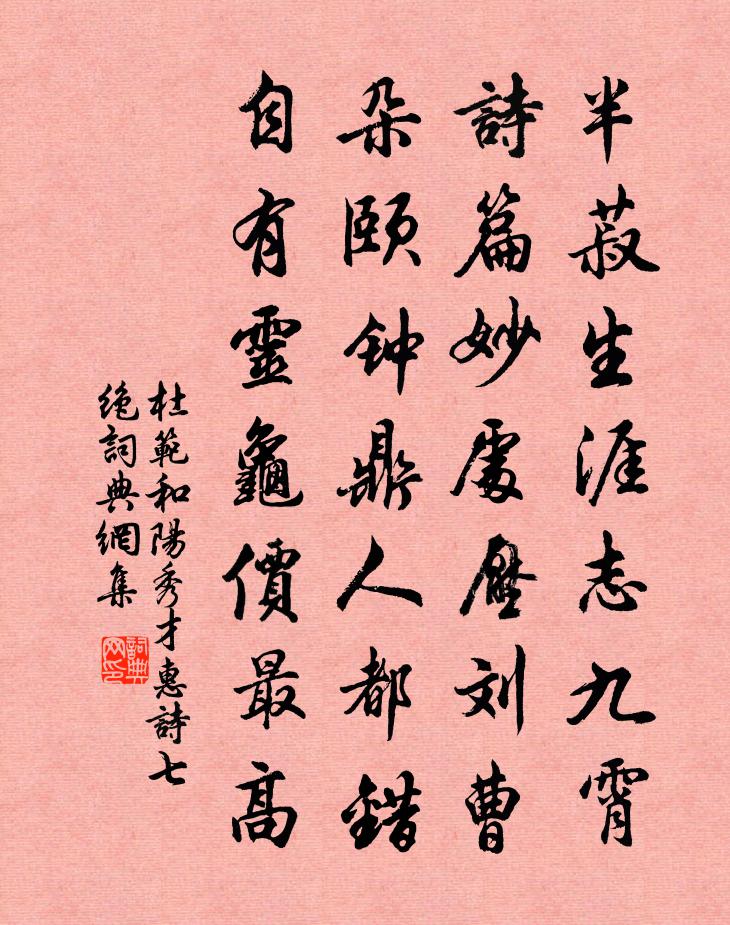 半菽生涯志九霄
詩篇妙處壓刘曹
朵頤钟鼎人都錯
自有靈龜價最高
杜範和陽秀才惠詩七
絶詞典網集
詞典网印